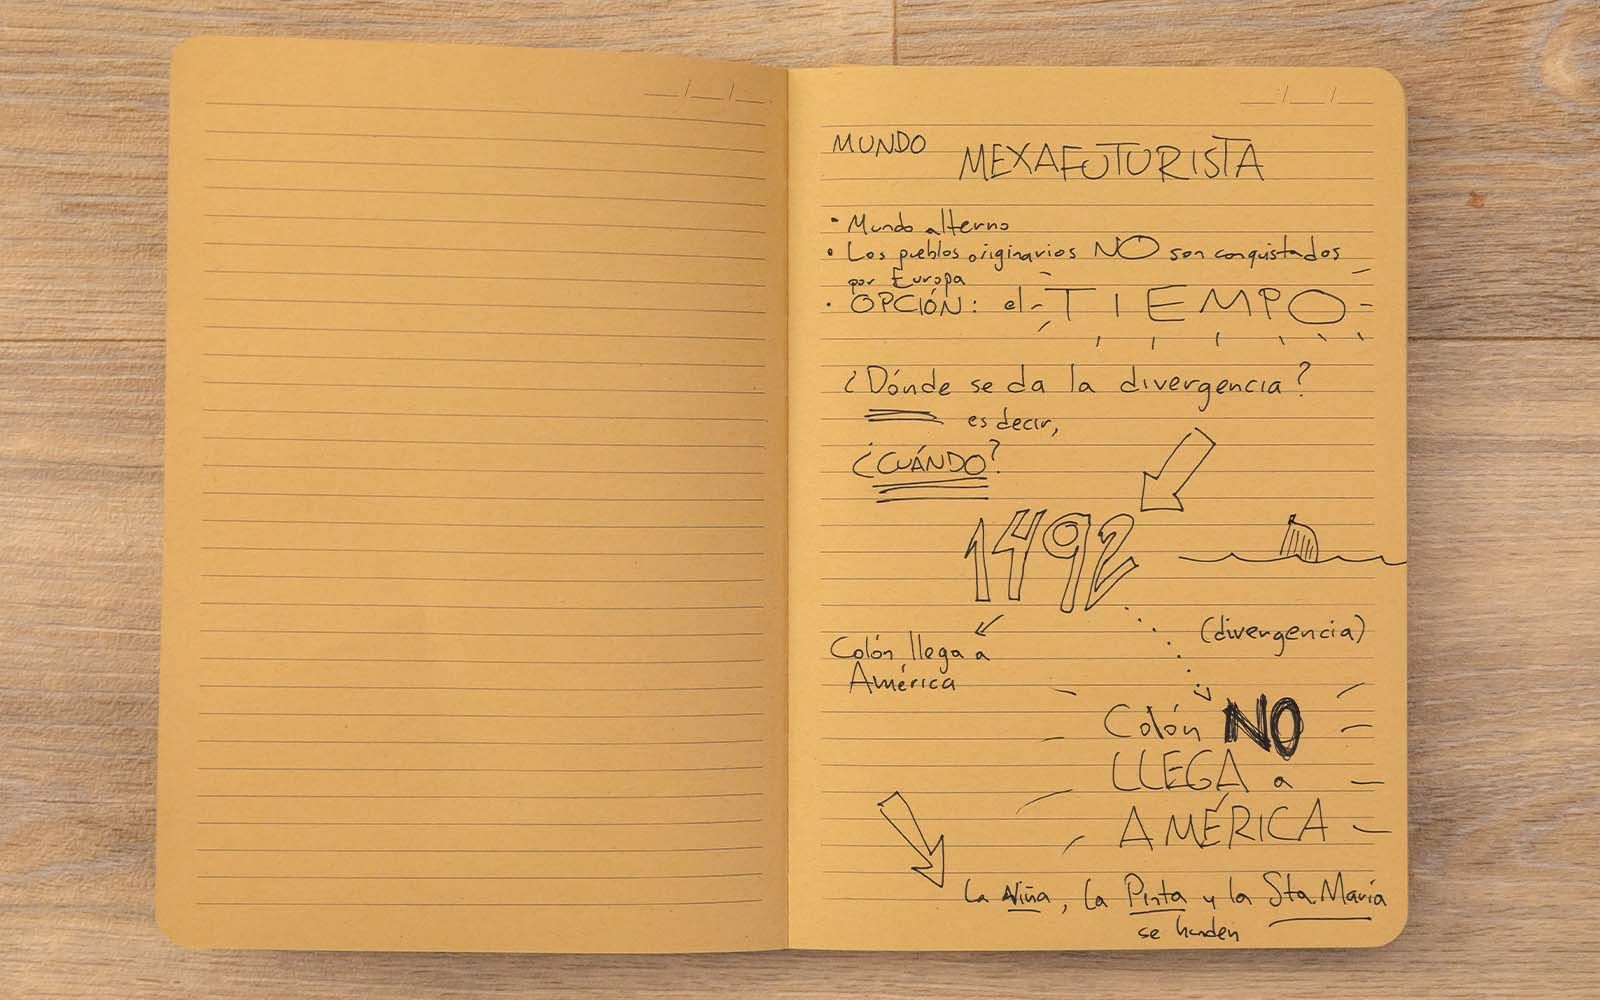 MUNDO MEXAFUTURISTA
• Mundo alterno
• Los pueblos originarios NO son conquistados
por Europa
• OPCIÓN: el TIEMPO
¿Dónde se da la divergencia?
es decir,
¿CUÁNDO?
1492
Colón llega a
América
(divergencia)
Colón NO
LLEGA a
AMÉRICA
La Niña, la Pinta y la Sta. María
se hunden